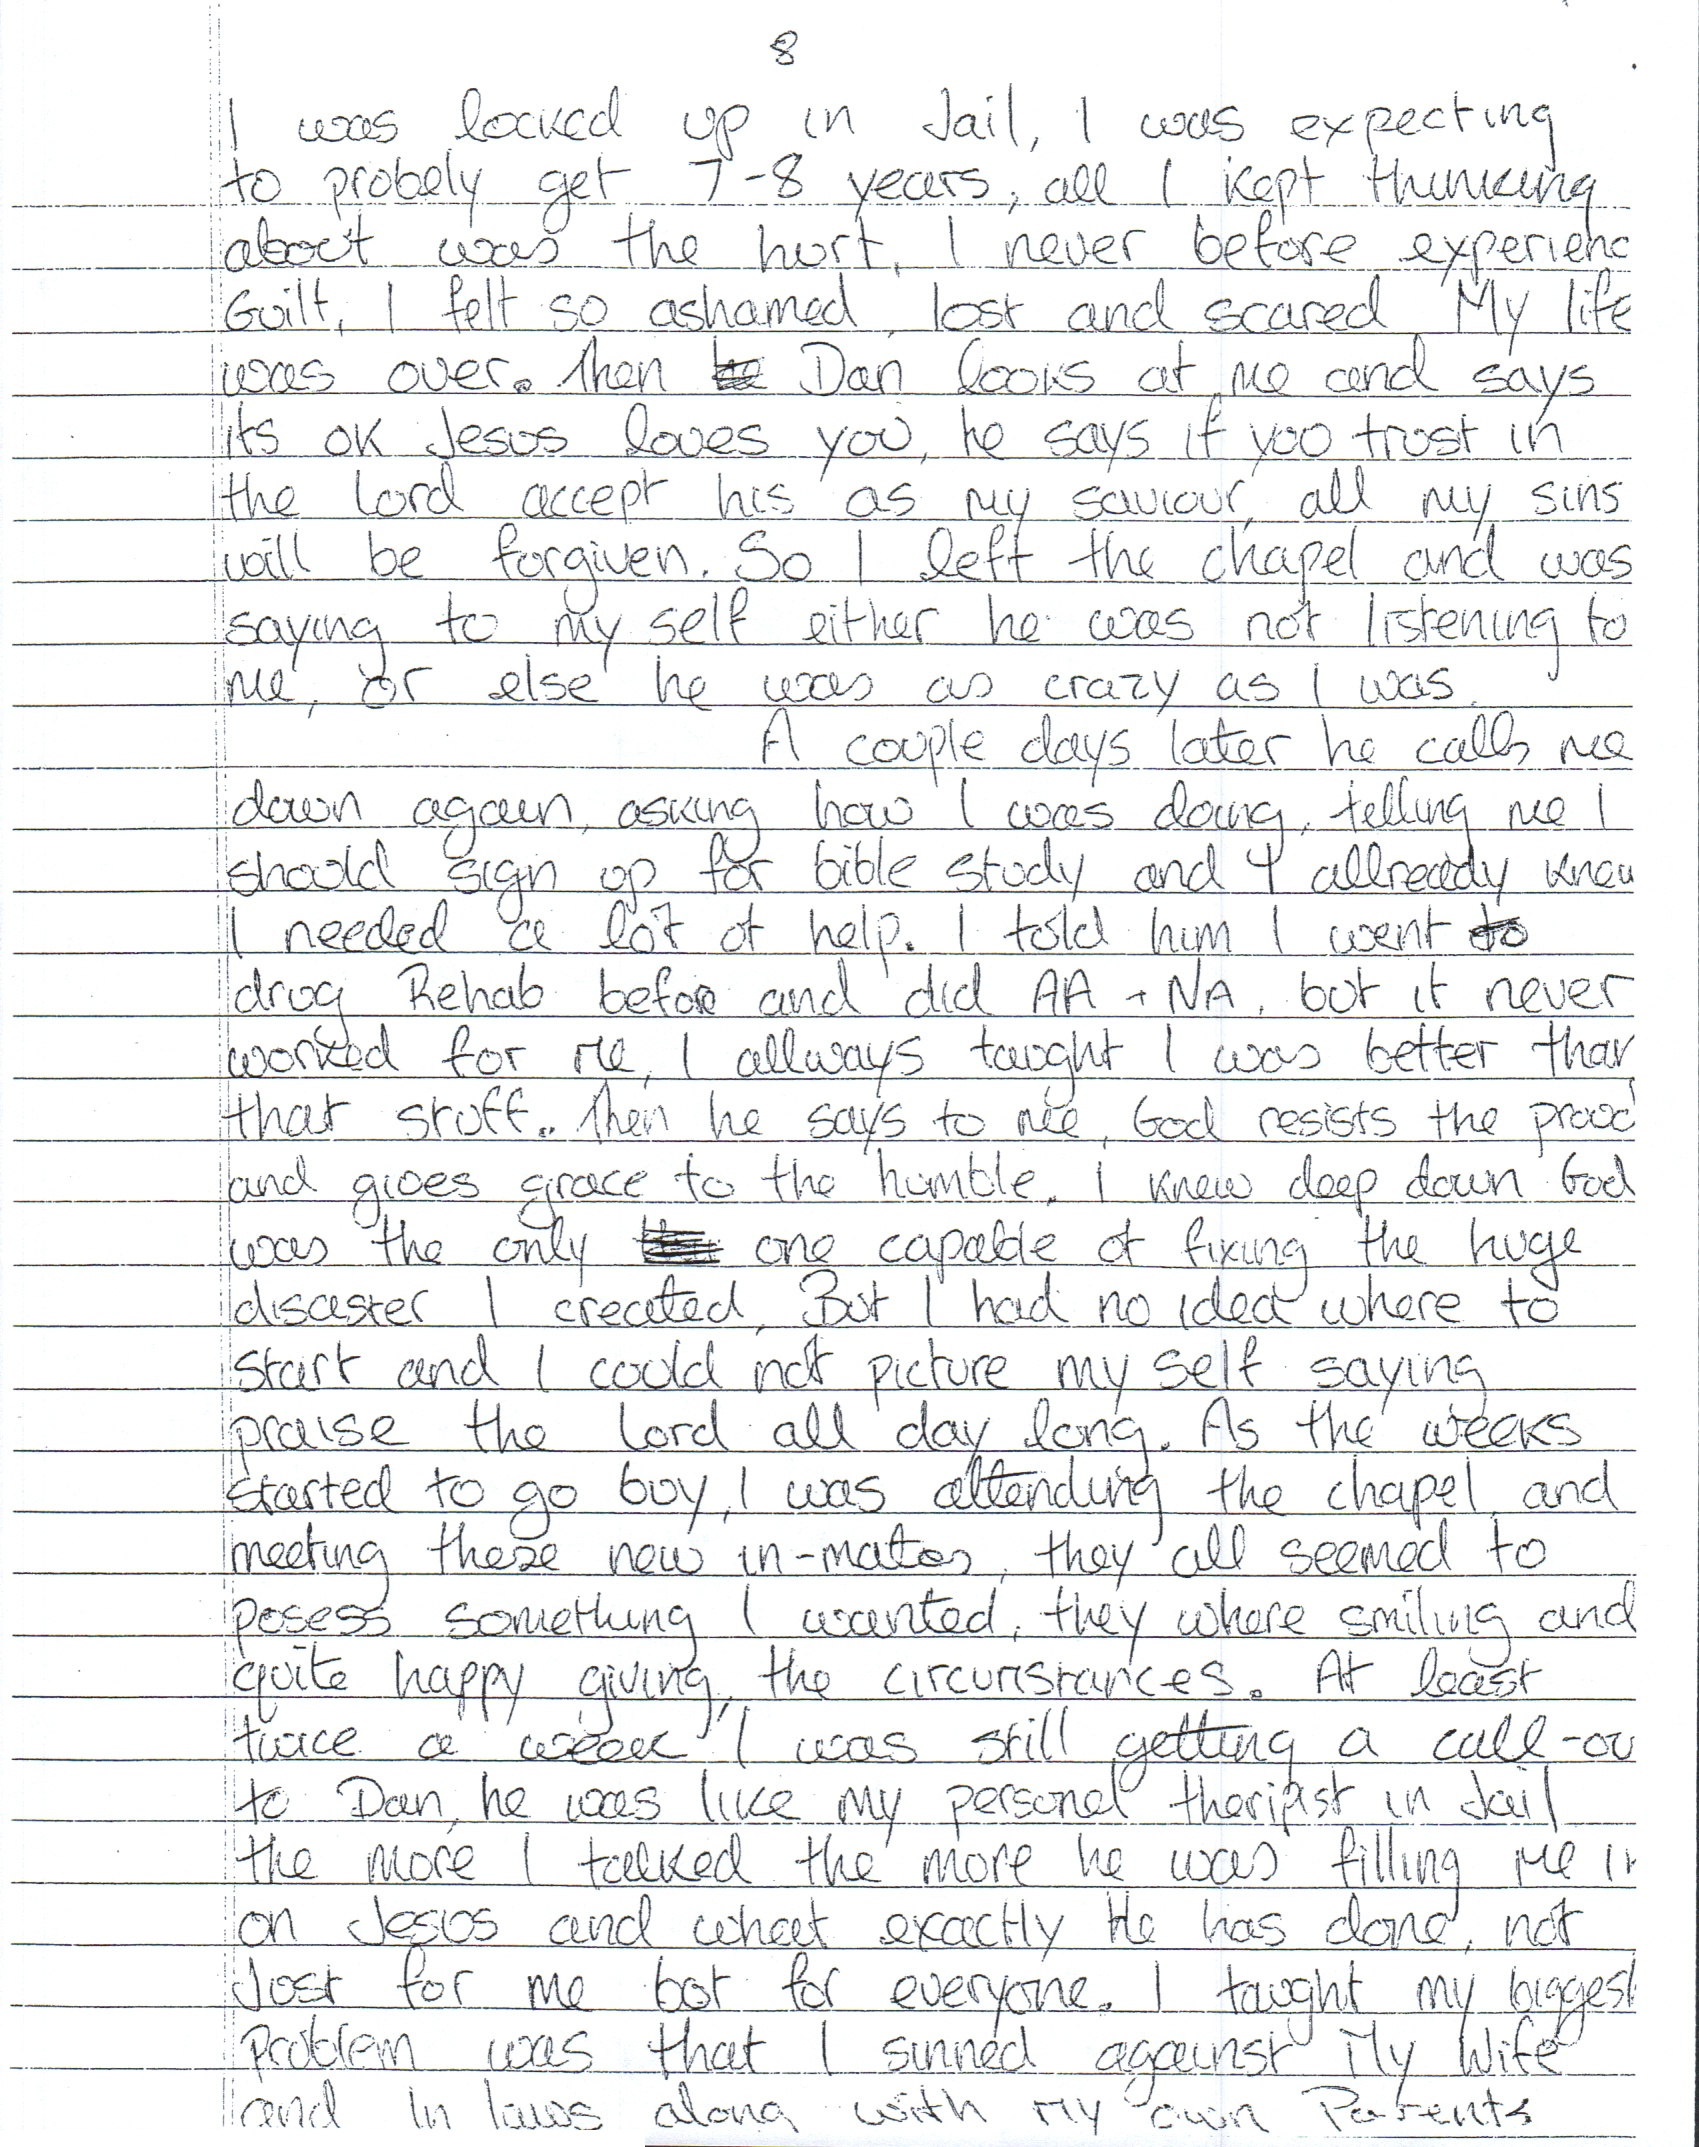 8
I was locked up in Jail, I was expecting
to probely get 7-8 years, all I kept thinking
about was the hurt, I never before experienc
Guilt, I felt so ashamed, lost and scared. My life
was over. Then Dan looks at me and says
its ok Jesus loves you, he says if you trust in
the Lord accept his as my saviour, all my sins
will be forgiven. So I left the chapel and was
saying to my self either he was not listening to
me, or else he was as crazy as I was.
A couple days later he calls me
down again, asking how I was doing, telling me I
should sign up for bible study and I allready knew
I needed a lot of help. I told him I went to
drug Rehab before and did AA + NA, but it never
worked for me, I allways taught I was better than
that stuff.. Then he says to me, God resists the proud
and gives grace to the humble. I knew deep down God
was the only one capable of fixing the huge
disaster I created, But I had no idea where to
start and I could not picture my self saying
praise the Lord all day long. As the weeks
started to go buy, I was attending the chapel, and
meeting these new in-mates, they all seemed to
posess something I wanted, they where smiling and
quite happy giving, the circumstances. At least
twice a week I was still getting a call-ou
to Dan, he was like my personel theripist in Jail
the more I talked the more he was filling me in
on Jesus and what exactly He has done, not
Just for me but for everyone. I taught my biggest
problem was that I sinned against My Wife
and In laws along with my own Parents